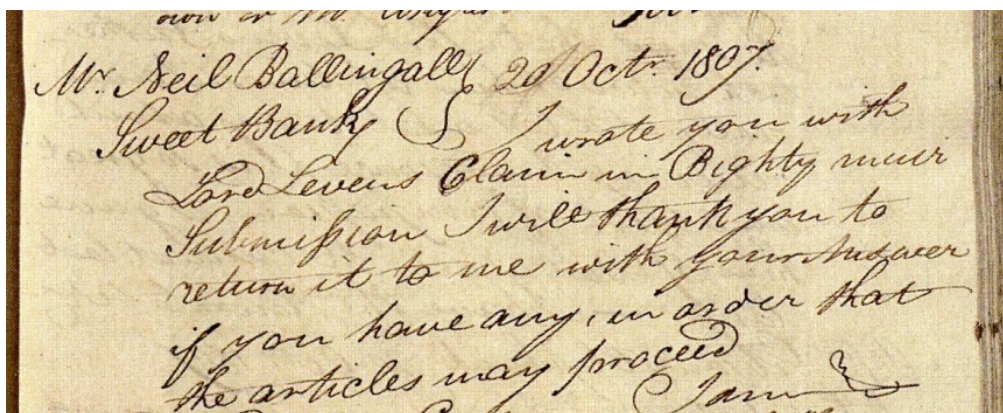 Mr. Neil Ballingall 2d Octr. 1807.
Sweet Bank I wrote you with
Lord Levens Claim in Bighty muir
Submission I will thank you to
return it to me with your Answer
if you have any, in order that
the articles may proceed
I am